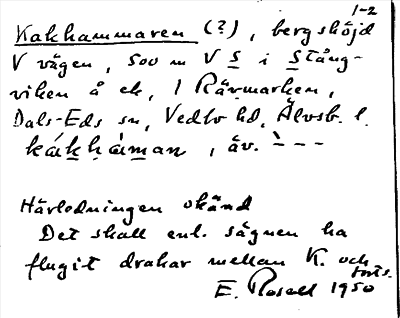 1-2
Kakhammaren (?), bergshöjd
V vägen, 500 m V S i Stång-
viken å ek, 1 Rävmarken,
Dals-Eds sn, Vedbo hd, Älvsb. l.
kákhàman, äv. `---
Härledningen okänd
Det skall enl. sägnen ha
flugit drakar mellan K. och
forts.
E. Rosell 1950